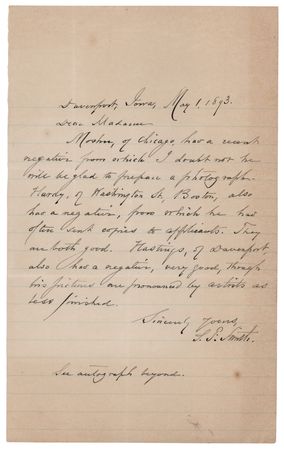 Davenport, Iowa, May 1, 1893.
Dear Madame
, of Chicago, has a recent
negative from which I doubt not he
will be glad to prepare a photograph.
Hardy, of Washington St, Boston, also
has a negative, from which he has
often sent copies to applicants. They
are both good. Hastings, of Davenport,
also has a negative, very good, though
his pictures are pronounced by artists as
less finished.
Sincerely yours,
S. F. Smith.
See autograph beyond.